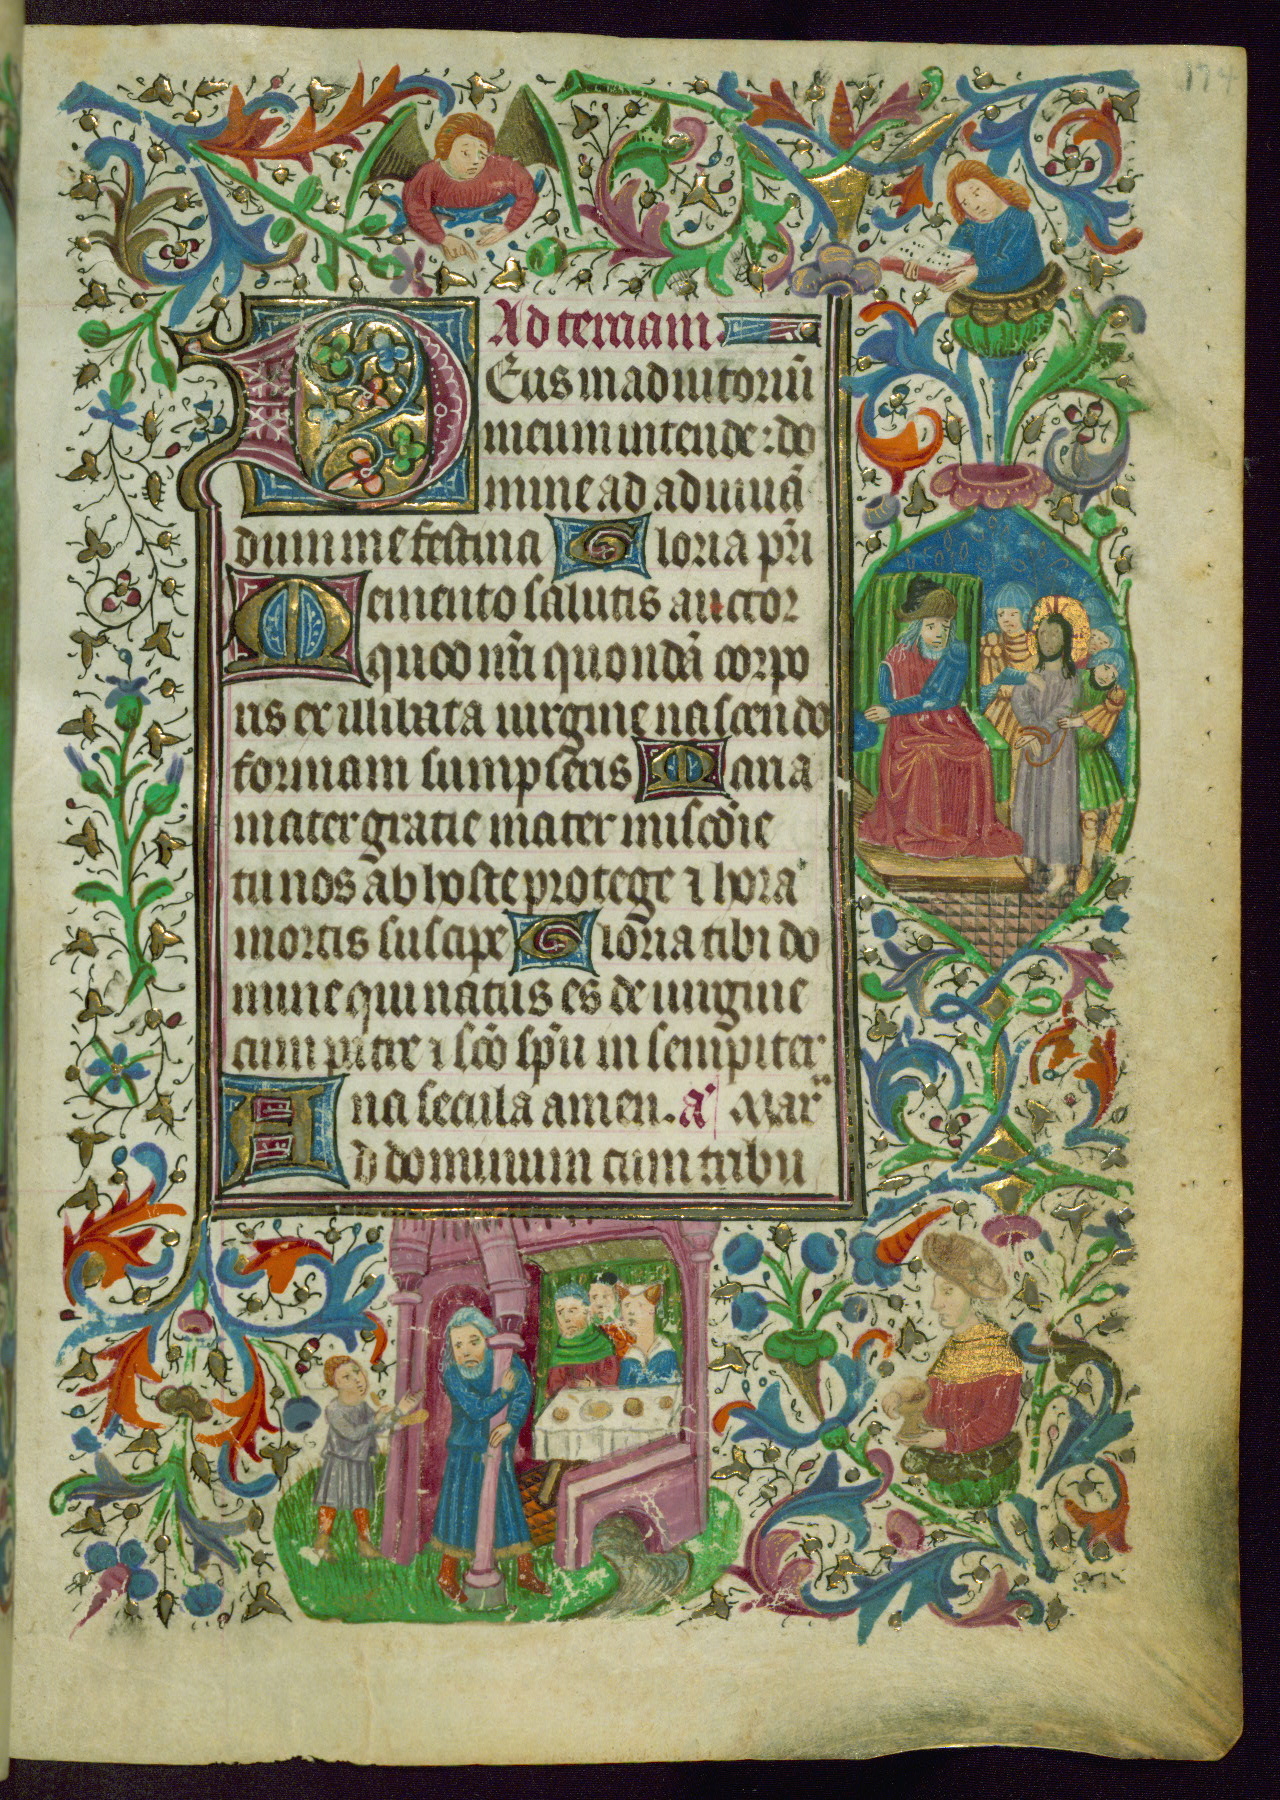 174
Ad terciam.
Deus in adiutoriū
meum intende: do
mine ad adiuuā
dum me festina Gloria pr̄i
Memento salutis auctor
quod nr̄i quondā corpo
ris ex illibata uirgine nascendo
formam sumpseris Maria
mater gratie mater misc̄die
tu nos ab hoste protege ⁊ hora
mortis suscipe Gloria tibi do
mine qui natus es de uirgine
cum patre ⁊ sc̄o sp̄u in sempiter
na secula amen. a' Mar
Ad dominum cum tribu